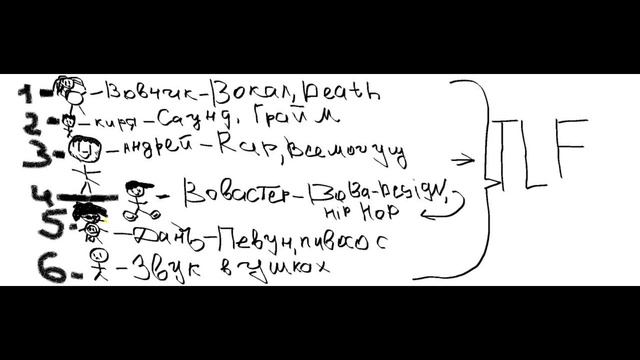 1 - Вовчик - Вокал, Death
2 - Киря - Саунд, Грайм
3 - Андрей - Rap, Всемогущ
4 Вовастер - Вова-Design, Hip Hop
5 - Данъ - Певун, пивасос
6 - Звук в ушках
TLF